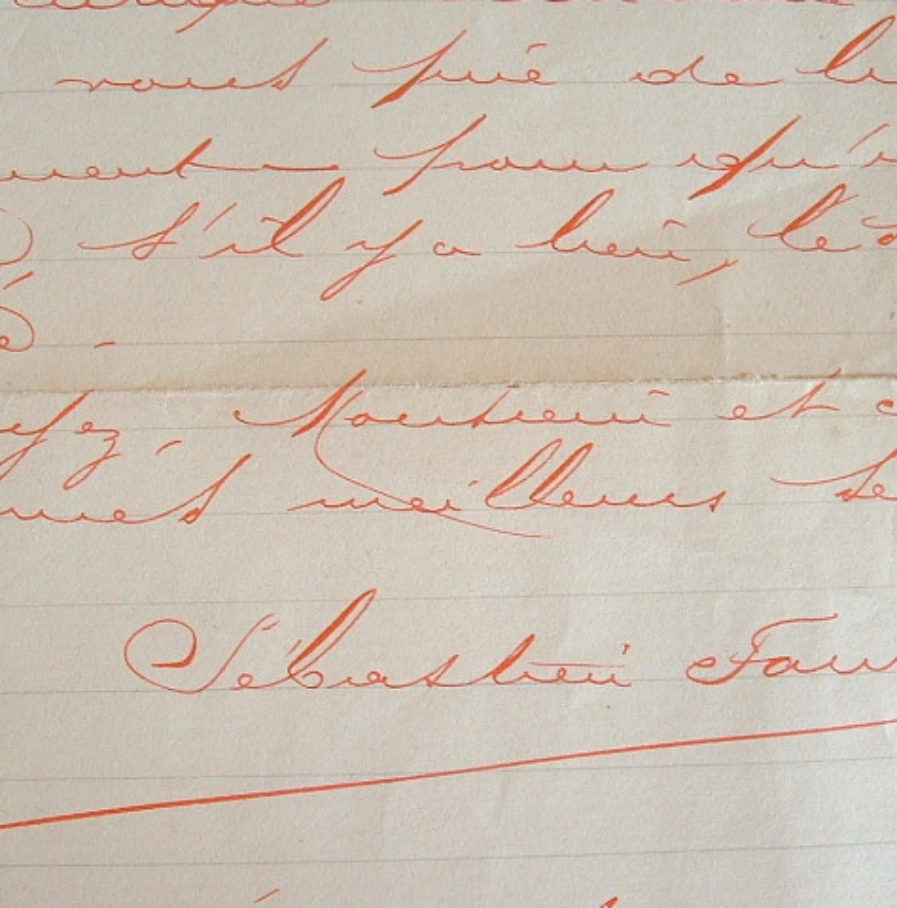 vous prie de
ment pour qu'
s'il y a lieu,
Monsieur et
mes meilleurs
Sébastien Fau